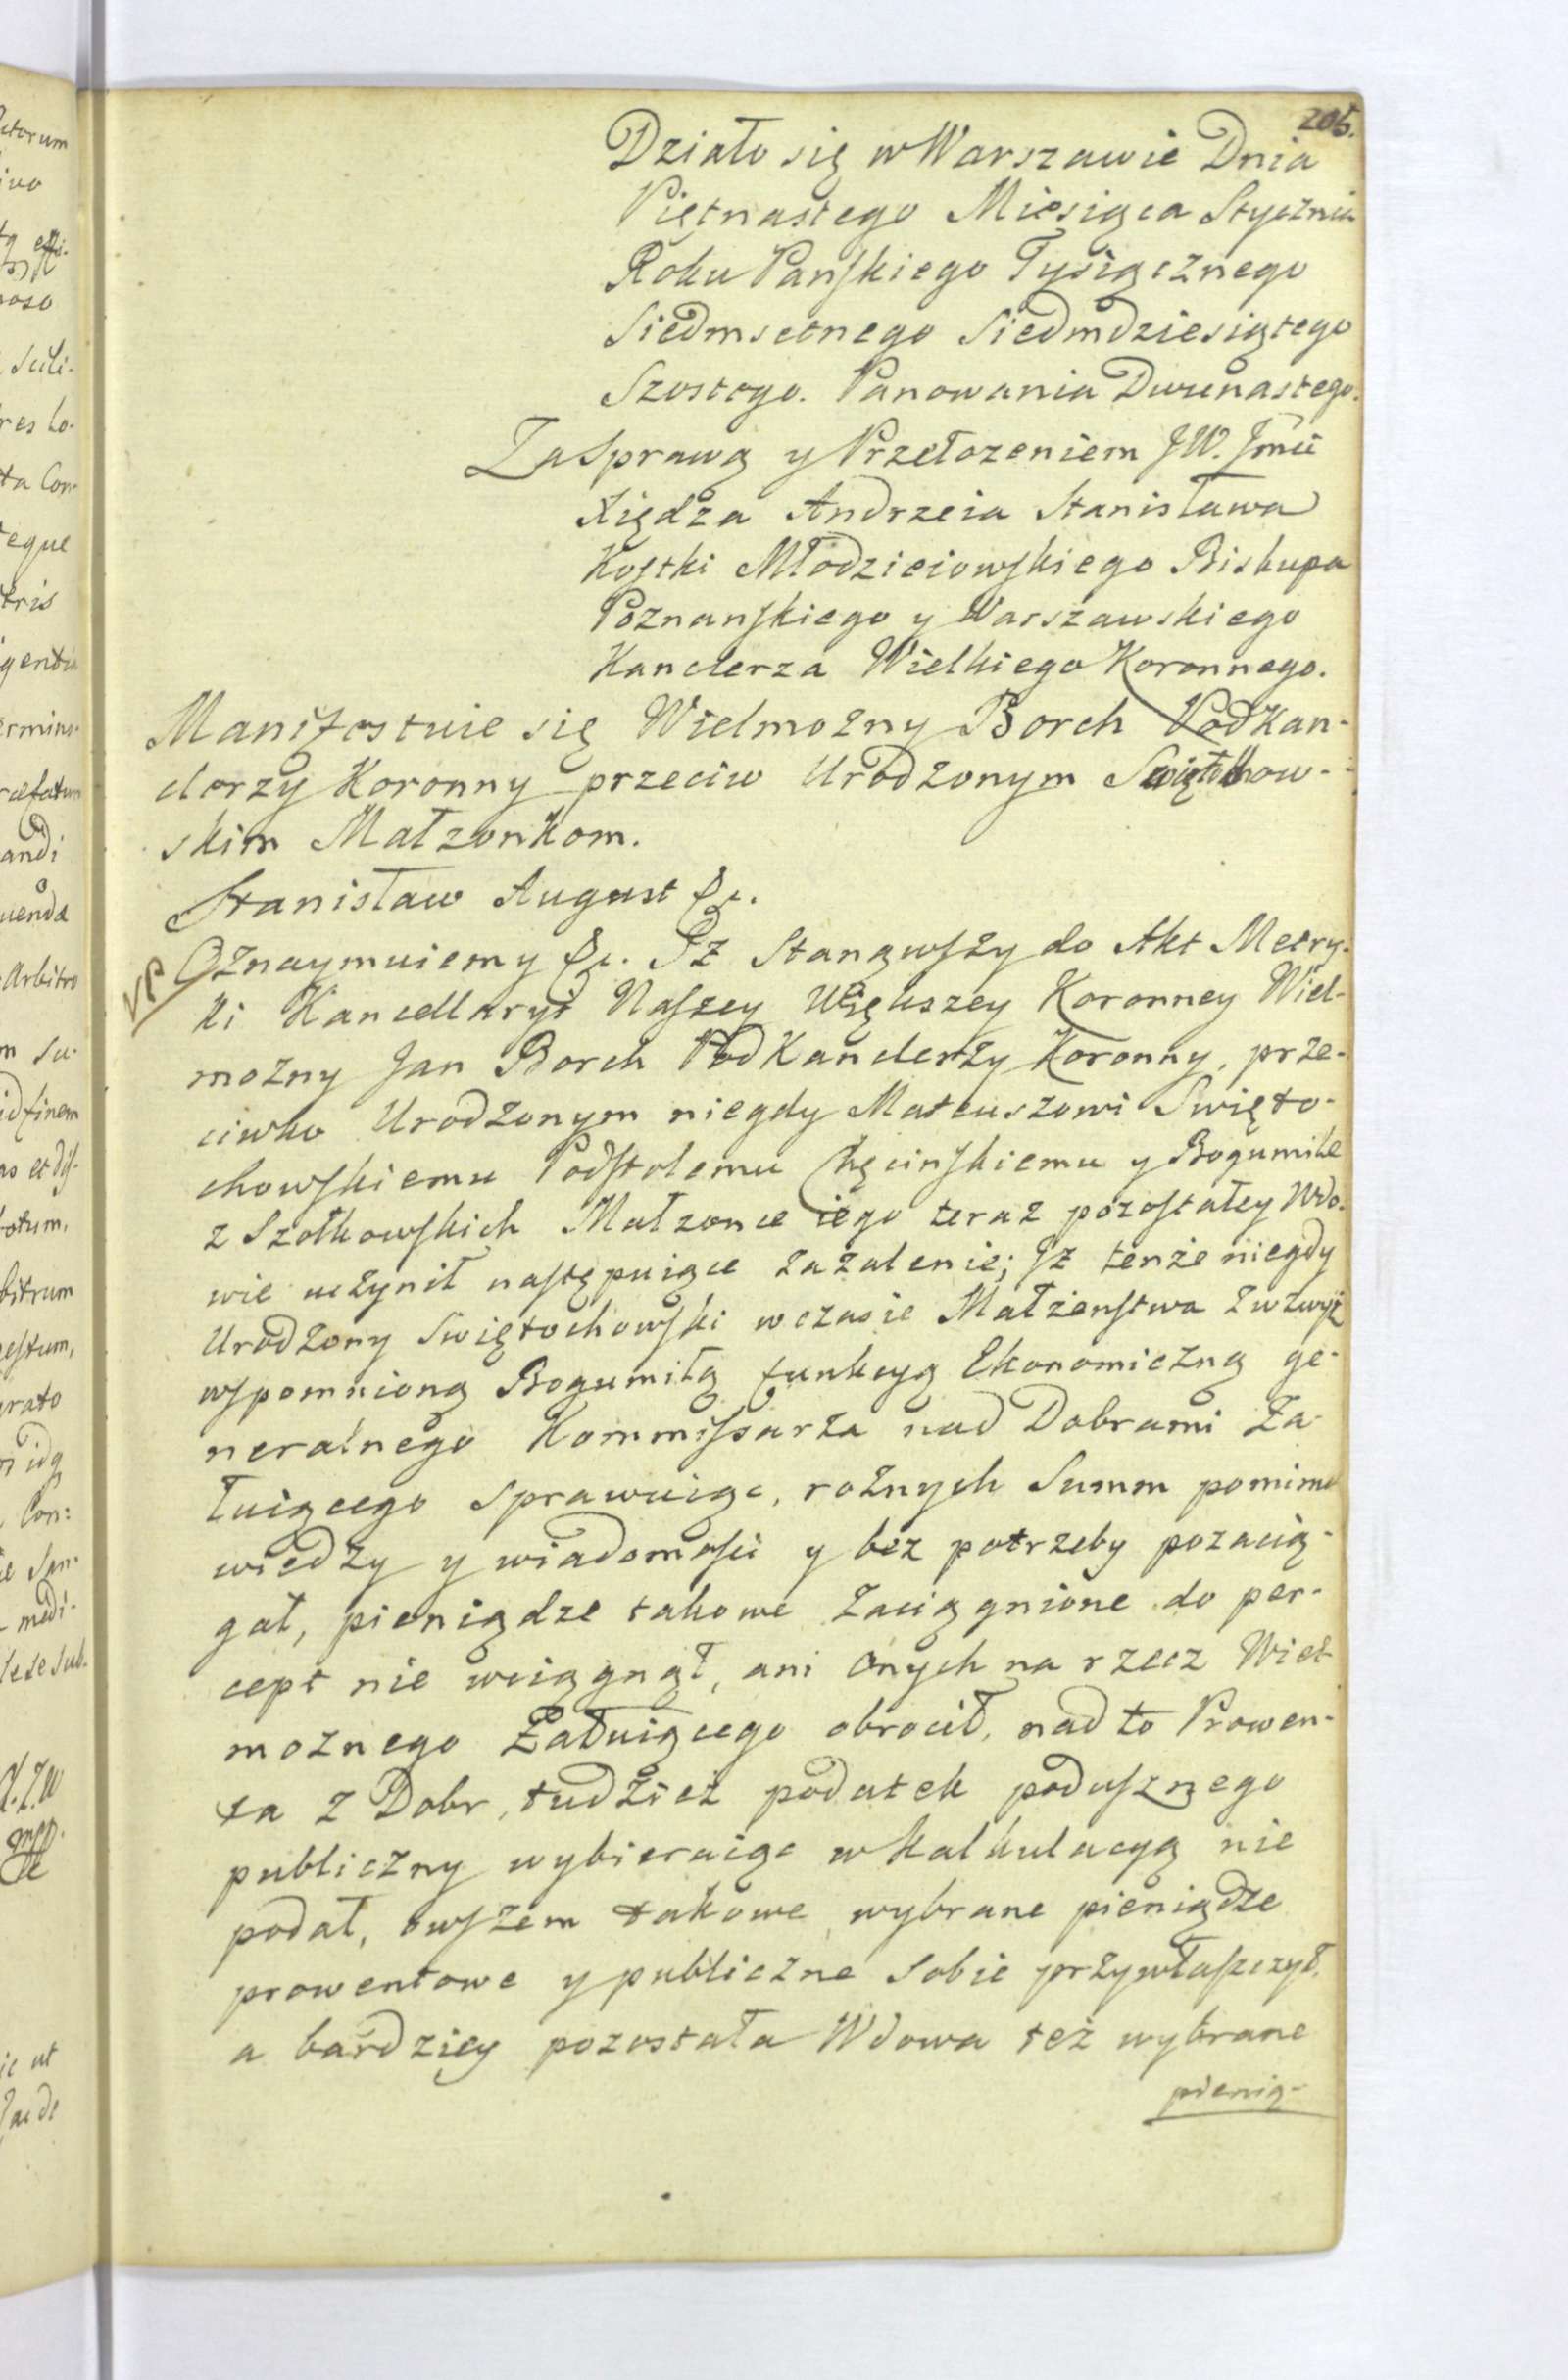 205.
Działo się w Warszawie Dnia
Piętnastego Miesiąca Stycznia
Roku Pańskiego Tysiącznego
Siedmsetnego Siedmdziesiątego
Szostego. Panowania Dwunastego.
Za Sprawą y Przełozeniem JW. Jmći
Xiędza Andrzeia Stanisława
Kostki Młodzieiowskiego Biskupa
Poznanskiego y Warszawskiego
Kanclerza Wielkiego Koronnego.
Manifestuie się Wielmożny Borch PodKan-
clerzy Koronny przeciw Urodzonym Swiętochow-
skim Małzonkom.
Stanisław August &c.
Oznaymuiemy &c. Iż Stanąwszy do Akt Metry-
ki Kancellaryi Naszey Większey Koronney Wiel-
mozny Jan Borch PodKanclerzy Koronny, prze-
ciwko Urodzonym niegdy Mateuszowi Swięto-
chowskiemu Podstolemu Chęcinskiemu y Bogumile
z Szołkowskich Małzonce iego teraz pozostałey Wdo-
wie uczynił następuiące zażalenie; Iż tenże niegdy
Urodzony Swiętochowski w czasie Małżenstwa z wzwyż
wspomnioną Bogumiłą funkcyą Ekonomiczną ge-
neralnego Kommissarza nad Dobrami Ża-
łuiącego sprawuiąc, rożnych Summ pomimo
wiedzy y wiadomości y bez potrzeby pozacią-
gał, pieniądze takowe zaciągnione do per-
cept nie wciągnął, ani onych na rzecz Wiel-
moznego Żałuiącego obrocił, nad to Prowen-
ta z Dobr, tudzież podatek podusznego
publiczny wybieraiąc w kalkulacyą nie
podał, owszem takowe wybrane pieniądze
prowentowe y publiczne sobie przywłaszczył.
a bardziey pozostała Wdowa też wybrane
pienią-